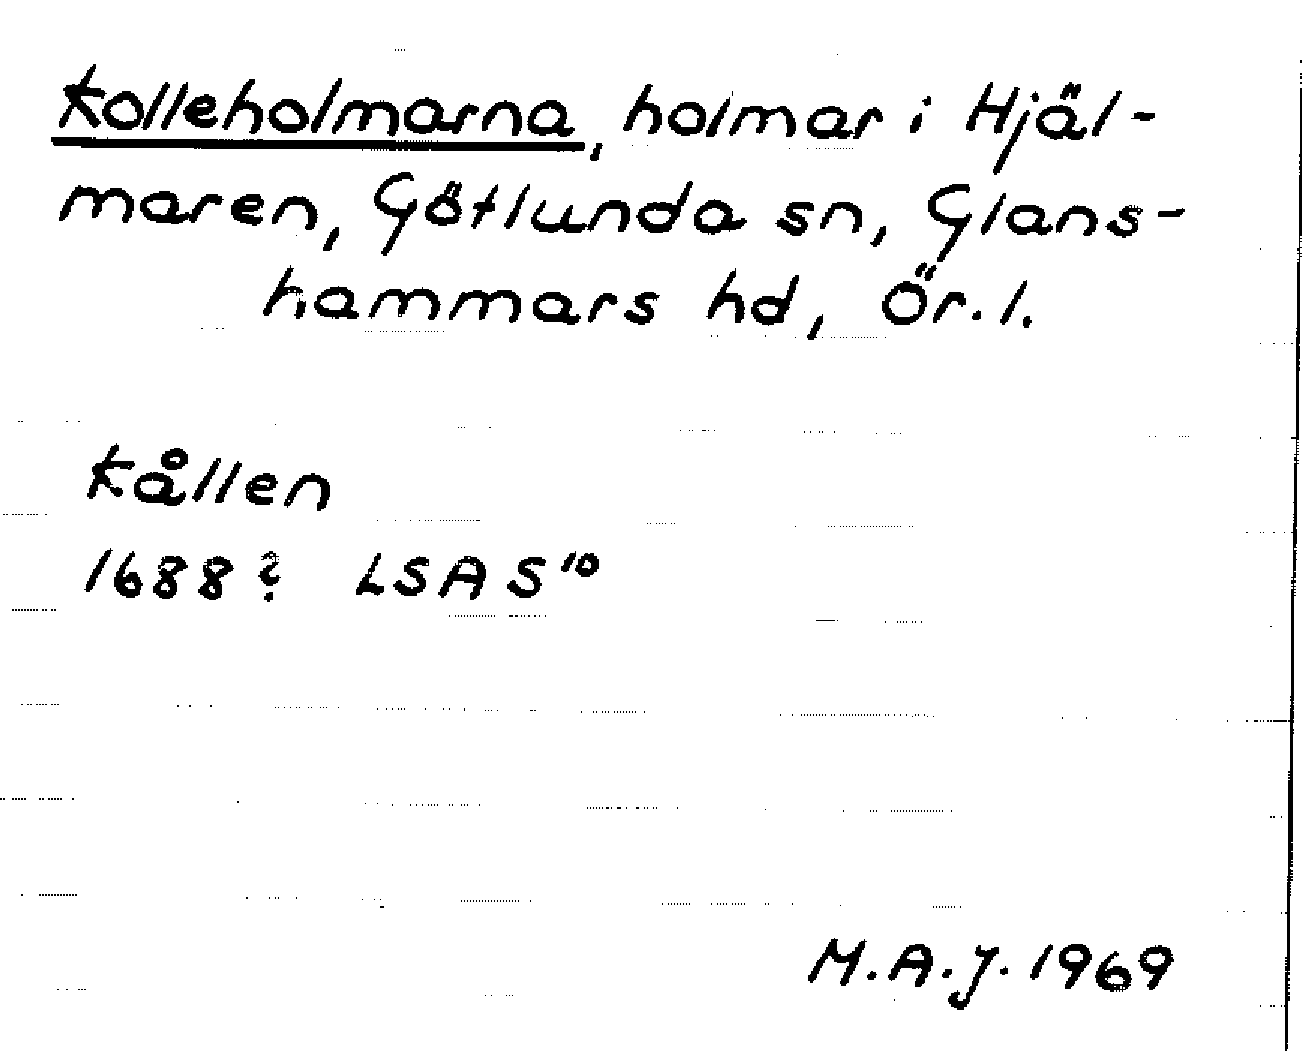 Kolleholmarna, holmar i Hjäl-
maren, Götlunda sn, Glans-
hammars hd, Ör. l.
Kållen
1688? LSA S¹⁰
M.A.J. 1969